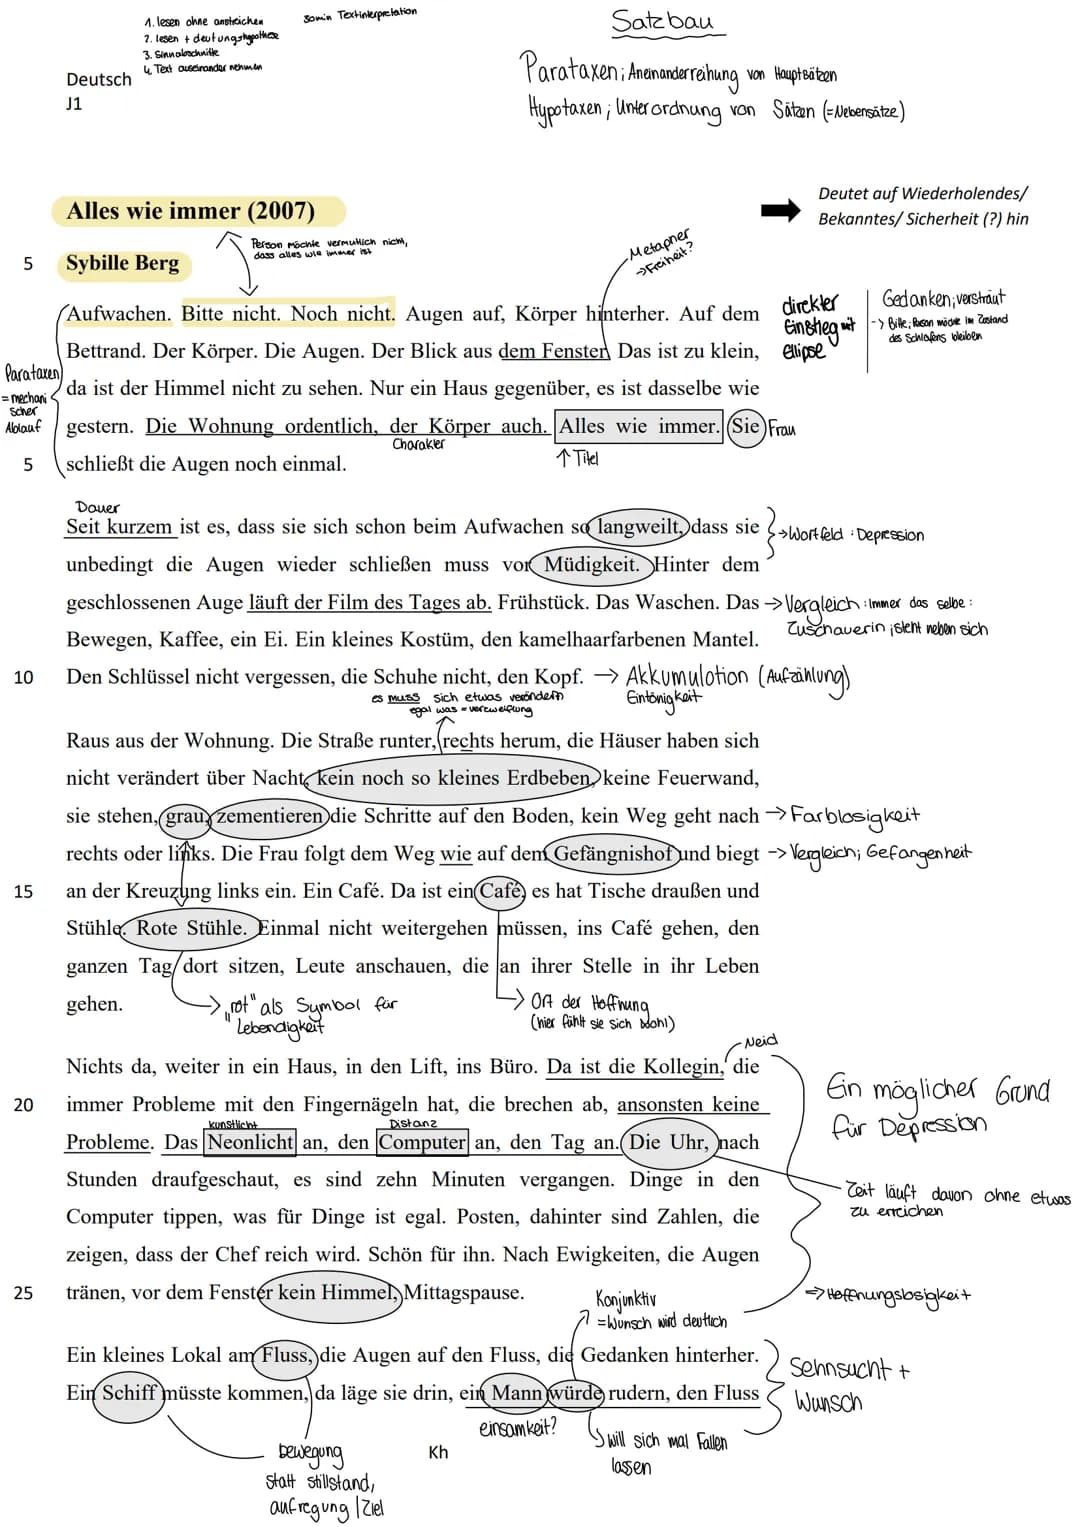 1. lesen ohne anstreichen
2. lesen + deutungshypothese
3. Sinnabschnitte
4. Text auseinander nehmen
30min Textinterpretation
Satzbau
Parataxen; Aneinanderreihung von Hauptsätzen
Hypotaxen; Unterordnung von Sätzen (=Nebensätze)
Deutsch
J1
Alles wie immer (2007)
Deutet auf Wiederholendes/
Bekanntes/ Sicherheit (?) hin
Person möchte vermutlich nicht,
dass alles wie immer ist
Metapher
→Freiheit?
5 Sybille Berg
Aufwachen. Bitte nicht. Noch nicht. Augen auf, Körper hinterher. Auf dem
Bettrand. Der Körper. Die Augen. Der Blick aus dem Fenster. Das ist zu klein,
da ist der Himmel nicht zu sehen. Nur ein Haus gegenüber, es ist dasselbe wie
gestern. Die Wohnung ordentlich, der Körper auch. Alles wie immer. Sie Frau
Charakter
↑ Titel
5 schließt die Augen noch einmal.
direkter
Einstieg mit
Ellipse
Gedanken; versträut
-> Bitte; Person möchte im Zustand
des Schlafens bleiben
Parataxen
= mechani
scher
Ablauf
Dauer
Seit kurzem ist es, dass sie sich schon beim Aufwachen so langweilt, dass sie
→Wortfeld : Depression
unbedingt die Augen wieder schließen muss vor Müdigkeit. Hinter dem
geschlossenen Auge läuft der Film des Tages ab. Frühstück. Das Waschen. Das → Vergleich : immer das selbe :
Zuschauerin ; steht neben sich
Bewegen, Kaffee, ein Ei. Ein kleines Kostüm, den kamelhaarfarbenen Mantel.
10 Den Schlüssel nicht vergessen, die Schuhe nicht, den Kopf. → Akkumulation (Aufzählung)
Eintönigkeit
es muss sich etwas verändern
egal was = verzweiflung
Raus aus der Wohnung. Die Straße runter, rechts herum, die Häuser haben sich
nicht verändert über Nacht, kein noch so kleines Erdbeben, keine Feuerwand,
sie stehen, grau, zementieren die Schritte auf den Boden, kein Weg geht nach → Farblosigkeit
rechts oder links. Die Frau folgt dem Weg wie auf dem Gefängnishof und biegt -> Vergleich; Gefangenheit
15 an der Kreuzung links ein. Ein Café. Da ist ein Café, es hat Tische draußen und
Stühle. Rote Stühle. Einmal nicht weitergehen müssen, ins Café gehen, den
ganzen Tag dort sitzen, Leute anschauen, die an ihrer Stelle in ihr Leben
gehen.
„rot" als Symbol für
Lebendigkeit
Ort der Hoffnung
(hier fühlt sie sich wohl)
Neid
Nichts da, weiter in ein Haus, in den Lift, ins Büro. Da ist die Kollegin, die
20 immer Probleme mit den Fingernägeln hat, die brechen ab, ansonsten keine
künstlicht
Distanz
Probleme. Das Neonlicht an, den Computer an, den Tag an. Die Uhr, nach
Stunden draufgeschaut, es sind zehn Minuten vergangen. Dinge in den
Computer tippen, was für Dinge ist egal. Posten, dahinter sind Zahlen, die
zeigen, dass der Chef reich wird. Schön für ihn. Nach Ewigkeiten, die Augen
25 tränen, vor dem Fenster kein Himmel, Mittagspause.
Ein möglicher Grund
für Depression
Zeit läuft davon ohne etwas
zu erreichen
=> Hoffnungslosigkeit
Konjunktiv
=Wunsch wird deutlich
Ein kleines Lokal am Fluss, die Augen auf den Fluss, die Gedanken hinterher.
Ein Schiff müsste kommen, da läge sie drin, ein Mann würde rudern, den Fluss
Sehnsucht +
Wunsch
einsamkeit?
will sich mal Fallen
lassen
bewegung
statt stillstand,
aufregung / Ziel
Kh